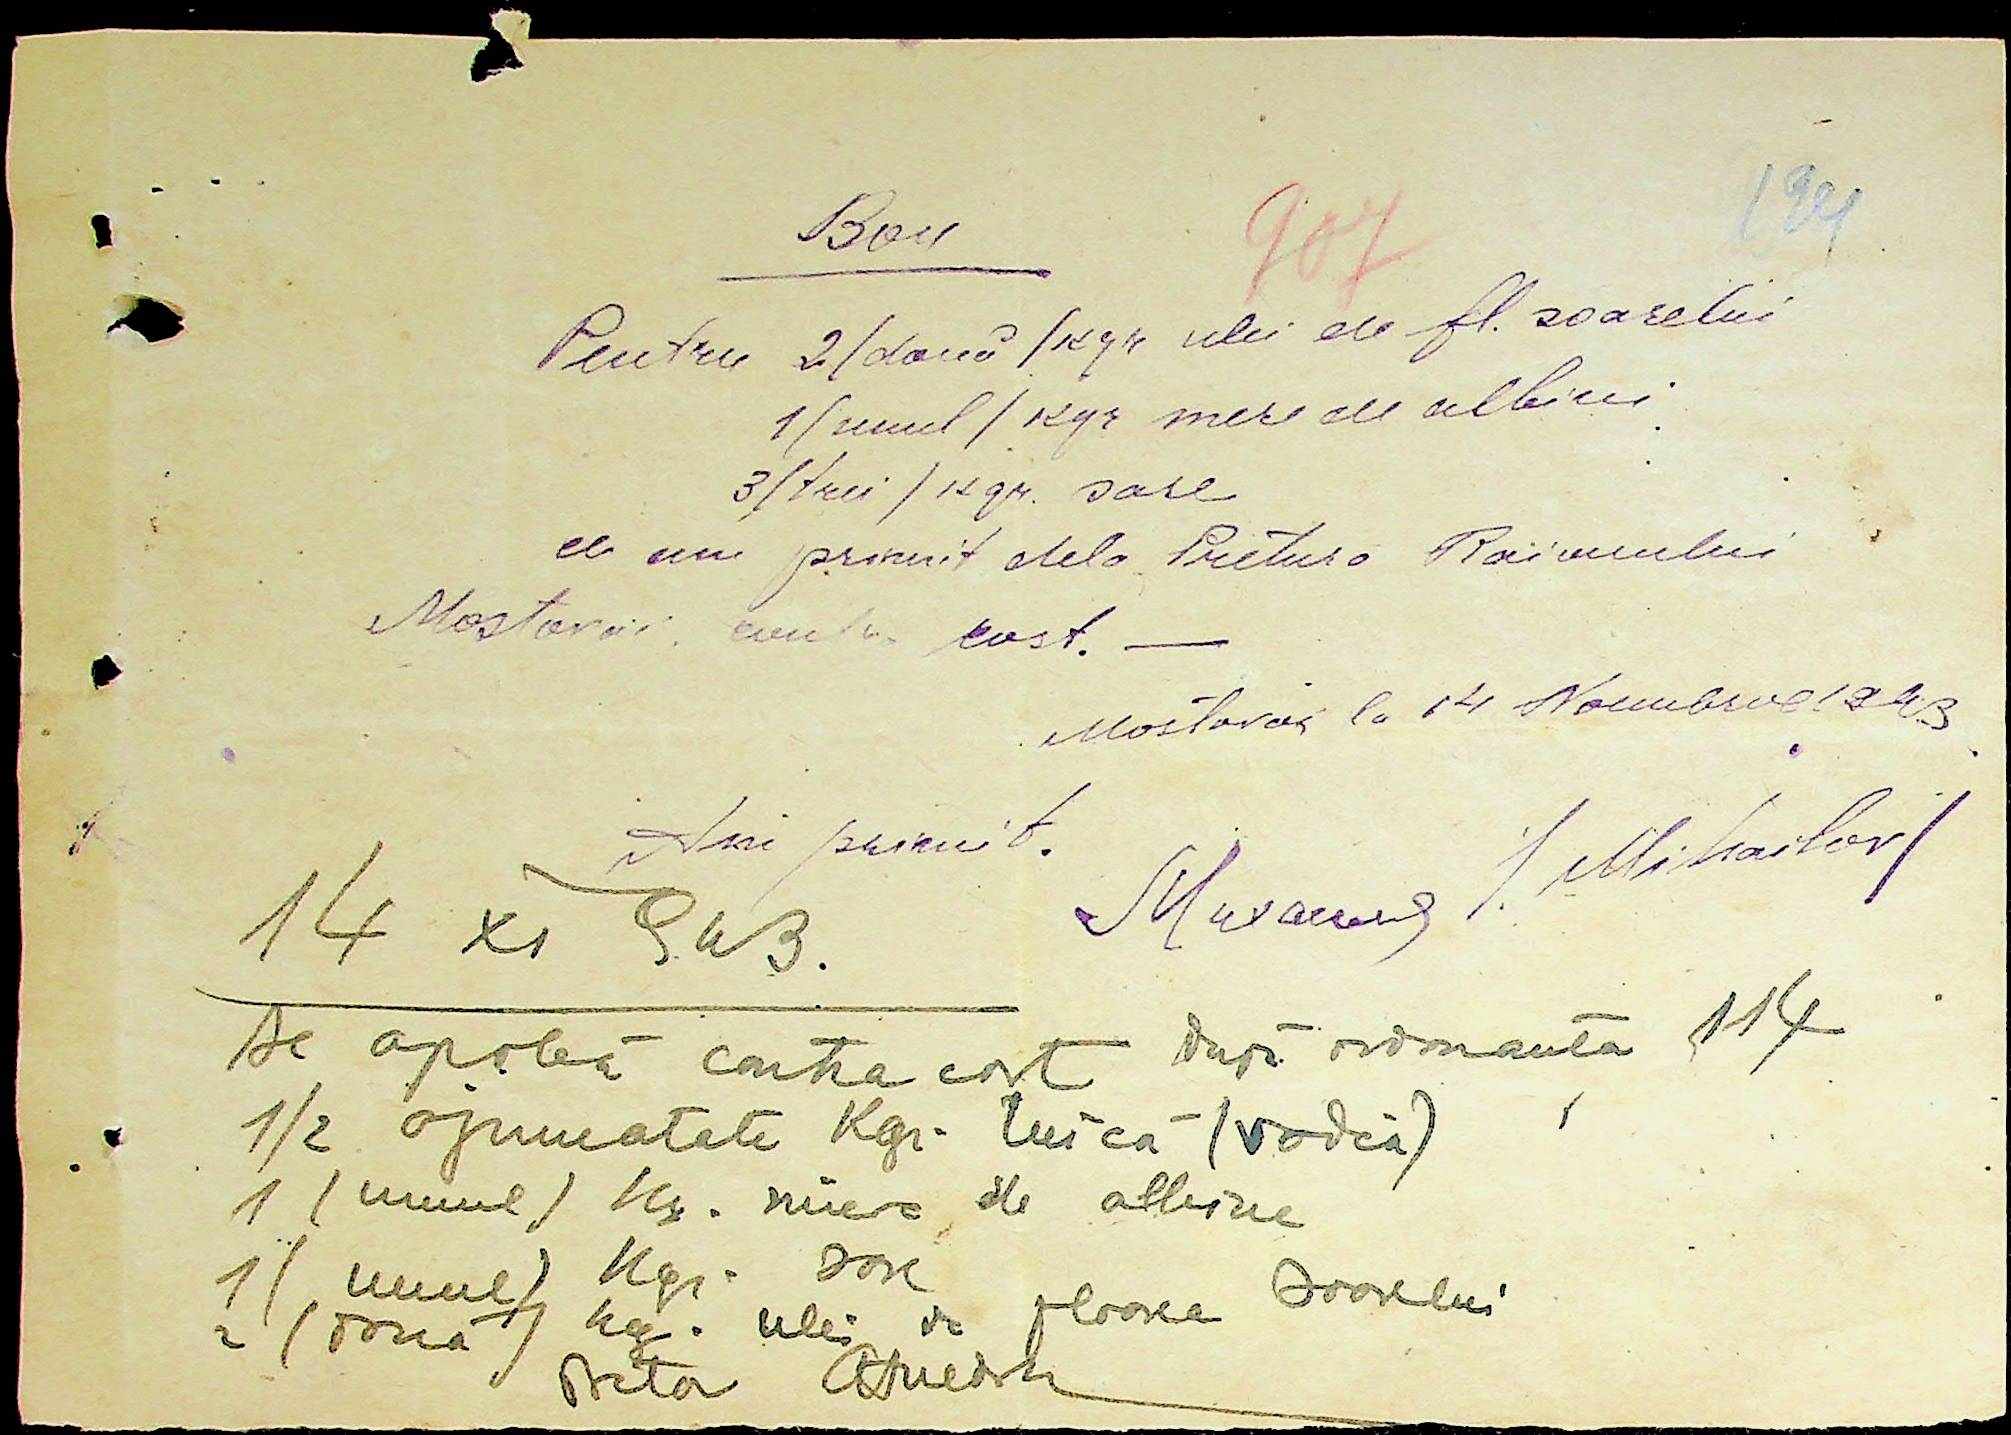 Bon
907
194
Pentru 2/două/kgr ulei de fl. soarelui
1/unul/kgr mere de albini
3/trei/kgr. sare
ce am primit dela Pretura Raionului
Mostovoi contra cost. —
Mostovoi la 14 Noembrie 1943
Am primit.
/Mihailov/
14 XI 943.
Se aprobă contra cost după ordonanta 114
1/2 o jumatate Kgr. tuică (vodcă)
1 (unul) Kg. miere de albine
1 (unul) Kgr. sare
2 (două) kg. ulei de floarea soarelui
Pretor